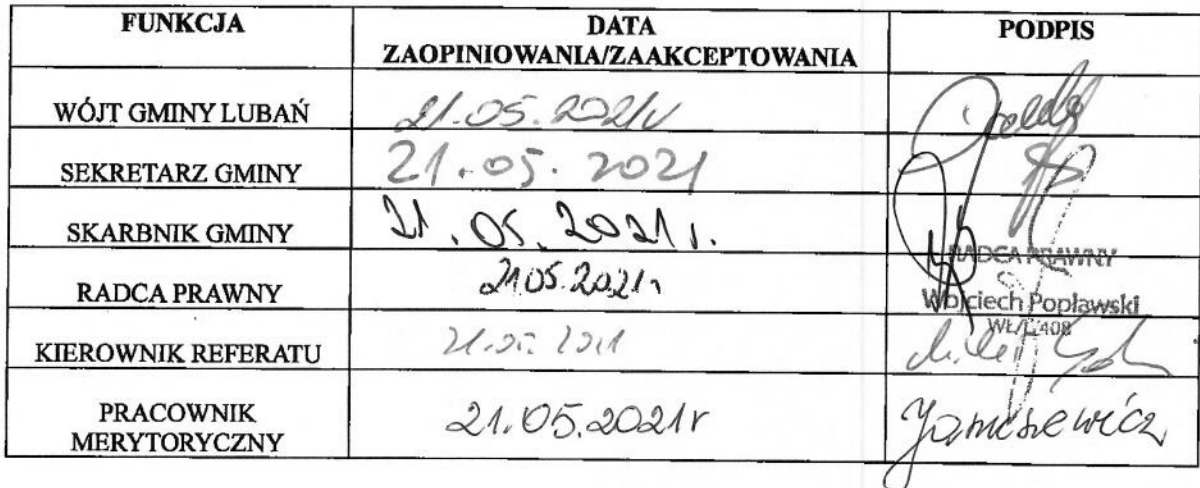 FUNKCJA
DATA
ZAOPINIOWANIA/ZAAKCEPTOWANIA
PODPIS
WÓJT GMINY LUBAŃ
21.05.2021r
SEKRETARZ GMINY
21.05.2021
SKARBNIK GMINY
21.05.2021r.
RADCA PRAWNY
21.05.2021r
RADCA PRAWNY
Wojciech Popławski
KIEROWNIK REFERATU
21.05.2021
PRACOWNIK
MERYTORYCZNY
21.05.2021r